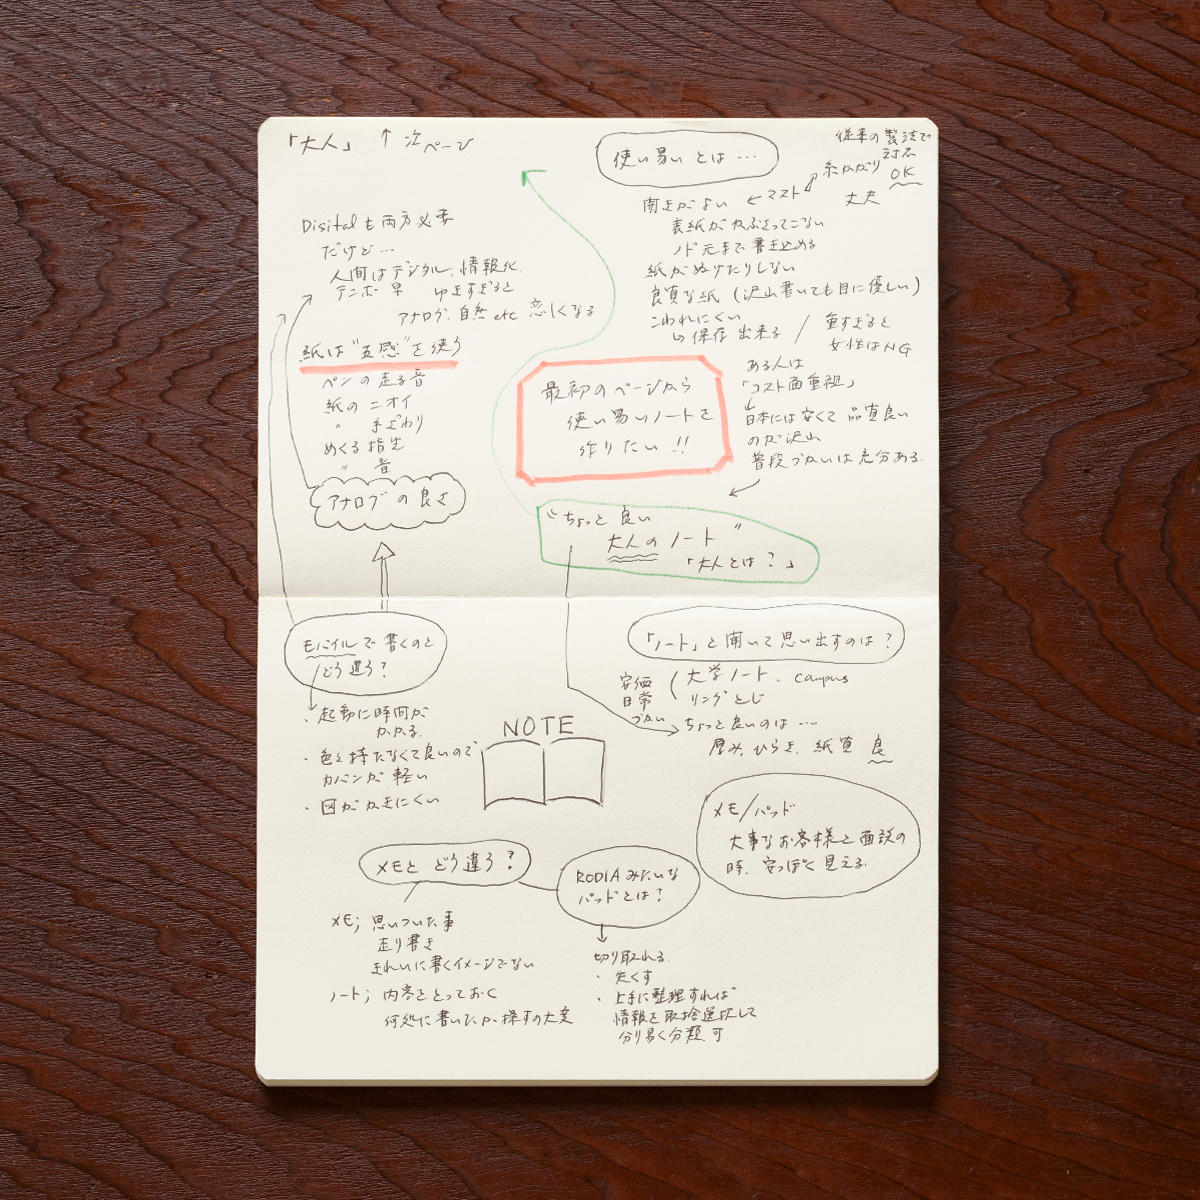 「大人」 ↑ 次ページ
Disitalも両方必要
だけど…
人間はデジタル、情報化
テンポ 早 ゆきすぎると
アナログ、自然 etc 恋しくなる
紙は"五感"を使う
ペンの走る音
紙の ニオイ
〃 手ざわり
めくる指先
〃 音
アナログの良さ
使い易いとは…
従来の製法で
対応
OK
糸かがり
丈夫
開きがよい ← マスト
表紙がかぶさってこない
ノド元まで書き込める
紙がぬけたりしない
良質な紙 (沢山書いても目に優しい)
こわれにくい
↳ 保存出来る / 重すぎると
女性はNG
ある人は
「コスト面重視」
日本には安くて品質良い
のが沢山
普段づかいは充分ある.
最初のページから
使い易いノートを
作りたい!!
"ちょっと良い
大人のノート"
「大人とは?」
モバイルで書くのと
どう違う?
・起動に時間が
かかる.
・色々持たなくて良いので
カバンが軽い
・図がかきにくい
NOTE
「ノート」と聞いて思い出すのは?
安価
日常
づかい
大学ノート、campus
リングとじ
ちょっと良いのは…
厚み、ひらき、紙質 良
メモ/パッド
大事なお客様と面談の
時、安っぽく見える.
メモと どう違う?
メモ; 思いついた事
走り書き
きれいに書くイメージでない
ノート; 内容をとっておく
何処に書いたか探すの大変
RODIAみたいな
パッドとは?
切り取れる.
・失くす
・上手に整理すれば
情報を取捨選択して
分り易く分類 可